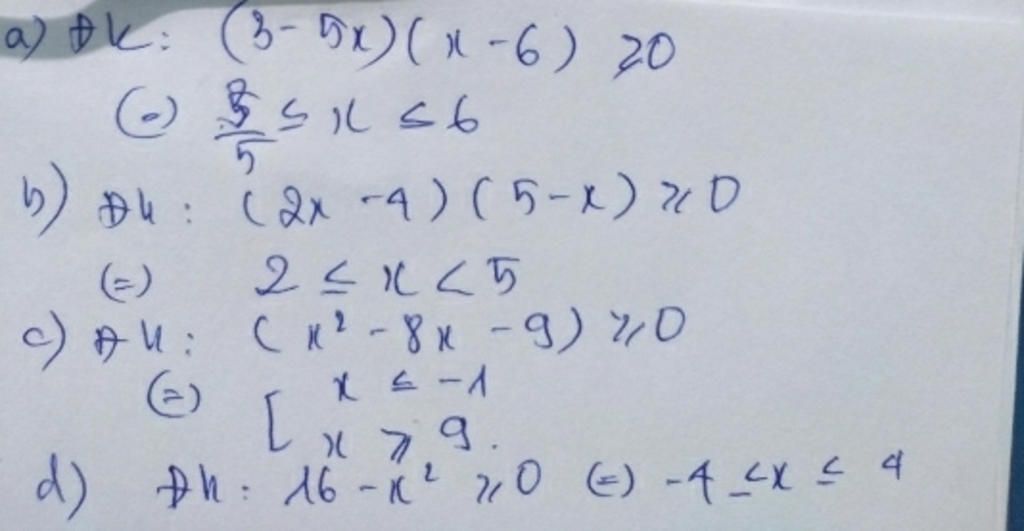 a) Đk: (3-5x)(x-6) ≥0
(=) 3/5 ≤ x ≤ 6
b) Đk: (2x-4)(5-x) ≥ 0
(=) 2 ≤ x < 5
c) Đk: (x² - 8x - 9) ≥ 0
(=) [ x ≤ -1
x ≥ 9.
d) Đk: 16 - x² ≥ 0 (=) -4 ≤ x ≤ 4